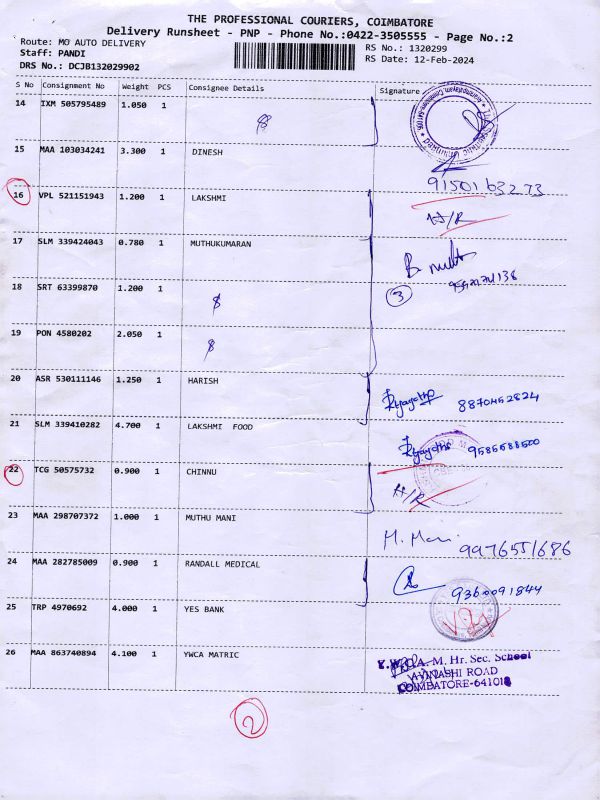 THE PROFESSIONAL COURIERS, COIMBATORE
Delivery Runsheet - PNP - Phone No.:0422-3505555 - Page No.:2
Route: MO AUTO DELIVERY
RS No.: 1320299
Staff: PANDI
RS Date: 12-Feb-2024
DRS No.: DCJB132029902
S No Consignment No Weight PCS Consignee Details Signature
14 IXM 505795489 1.050 1
15 MAA 103034241 3.300 1 DINESH
9150163273
16 VPL 521151943 1.200 1 LAKSHMI
H/R
17 SLM 339424043 0.780 1 MUTHUKUMARAN
18 SRT 63399870 1.200 1
3
19 PON 4580202 2.050 1
20 ASR 530111146 1.250 1 HARISH
8870452824
21 SLM 339410282 4.700 1 LAKSHMI FOOD
9585588500
22 TCG 50575732 0.900 1 CHINNU
H/R
23 MAA 298707372 1.000 1 MUTHU MANI
M. Mani 9976551686
24 MAA 282785009 0.900 1 RANDALL MEDICAL
9360091844
25 TRP 4970692 4.000 1 YES BANK
26 MAA 863740894 4.100 1 YWCA MATRIC
Y.W.C.A. M. Hr. Sec. School
AVINASHI ROAD
COIMBATORE-641018
2